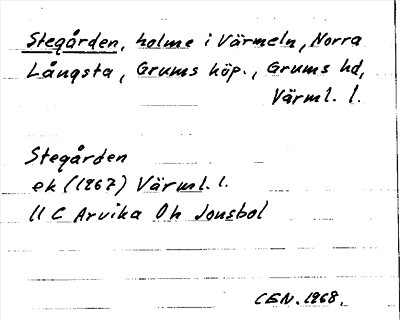 Stegården, holme i Värmeln, Norra
Långsta, Grums köp., Grums hd,
Värml. l.
Stegården
ek (1967) Värml. l.
11 C Arvika 0h Jonsbol
CEN. 1968.